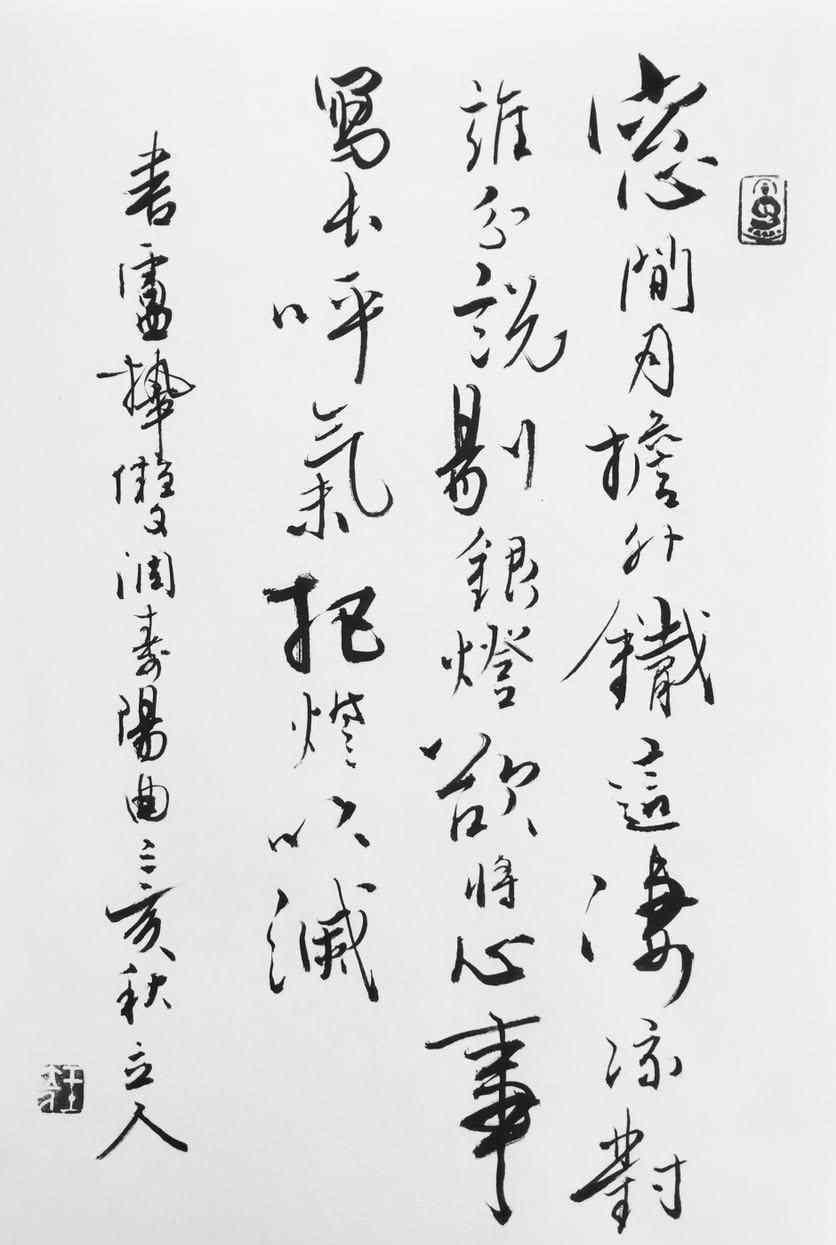 窓間月檐外鐵這凄涼對
誰分說剔銀燈欲將心事
寫長呼氣把燈吹滅
書盧摯雙調壽陽曲己亥秋立人